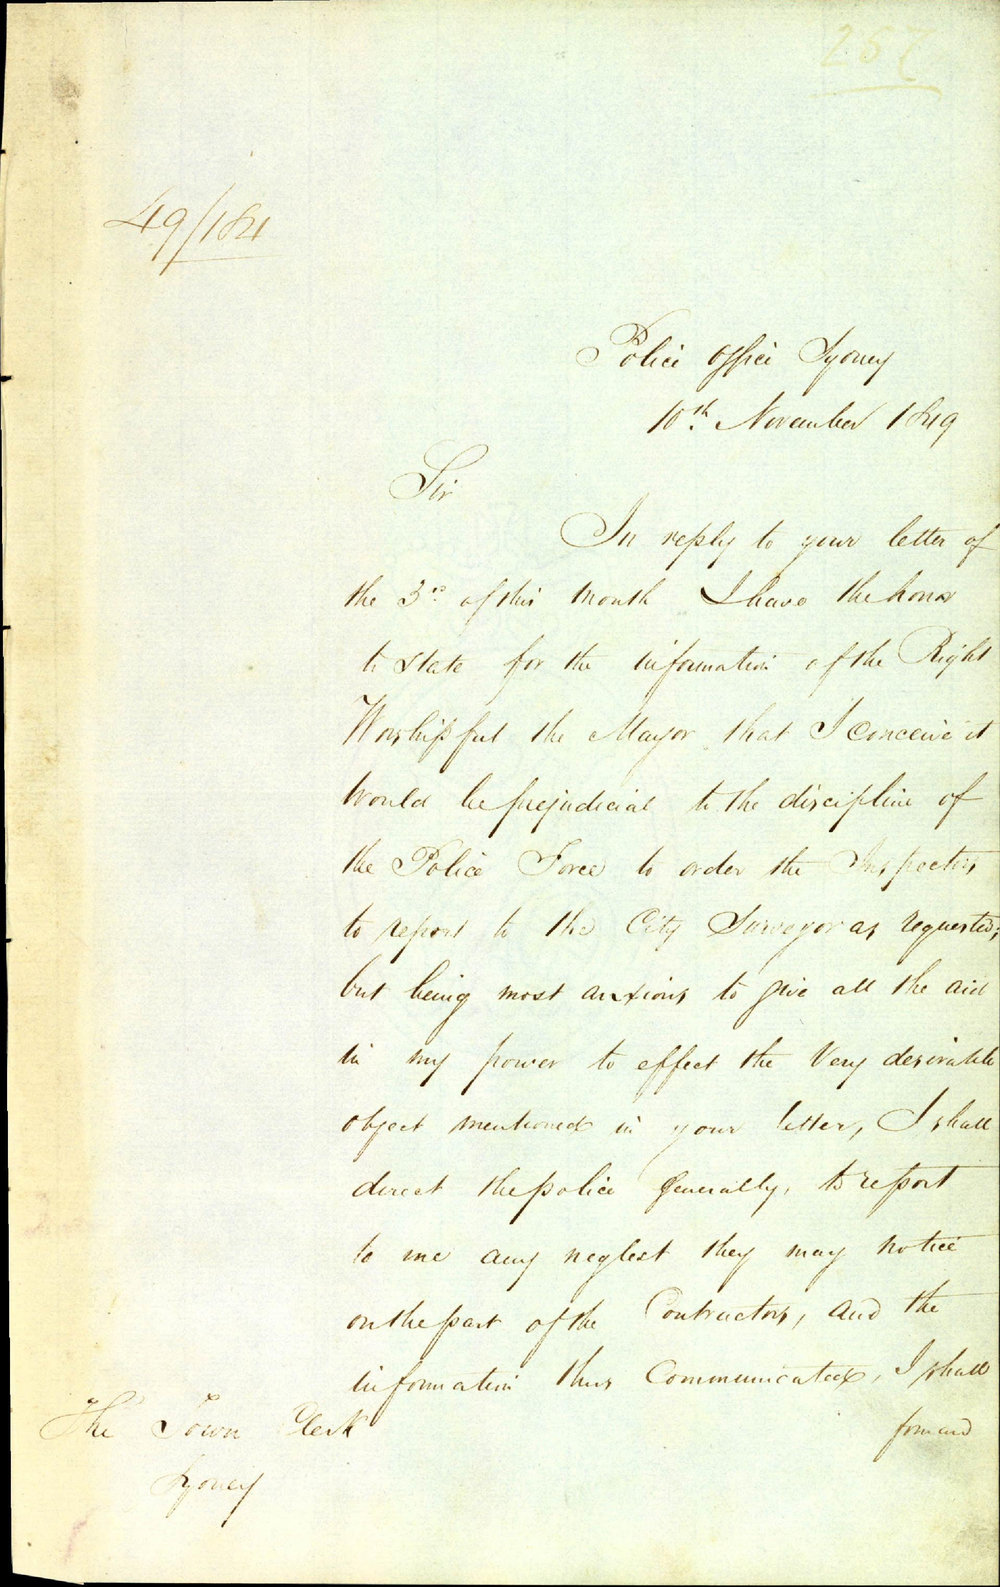 257
49/184
Police Office Sydney
10th. November 1849
Sir
In reply to your letter of
the 3rd of this month I have the honor
to state for the information of the Right
Worshipful the Mayor that I conceive it
would be prejudicial to the discipline of
the Police Force to order the Inspectors
to report to the City Surveyor as requested;
but being most anxious to give all the aid
in my power to effect the very desirable
object mentioned in your letter, I shall
direct the police generally, to report
to me any neglect they may notice
on the part of the Contractors, and the
information thus Communicated, I shall
forward
The Town Clerk
Sydney